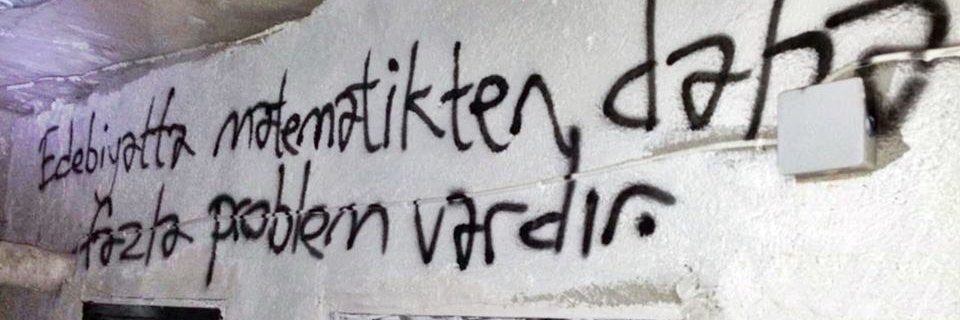 Edebiyatta matematikten, daha
fazla problem vardır.